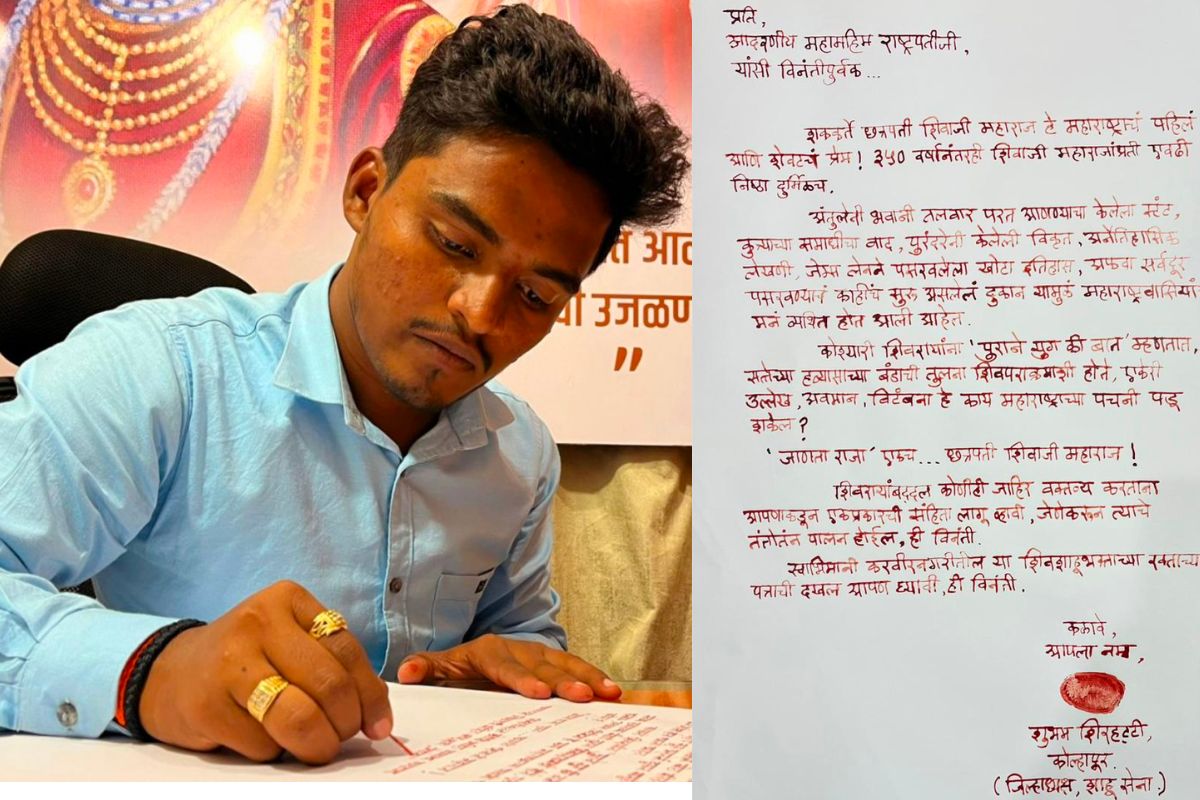 त आल
वा उजळण
”
प्रति,
आदरणीय महामहिम राष्ट्रपतीजी,
यांसी विनंतीपुर्वक...
शककर्ते छत्रपती शिवाजी महाराज हे महाराष्ट्राचं पहिलं
आणि शेवटचं प्रेम! ३५० वर्षानंतरही शिवाजी महाराजांप्रती एवढी
निष्ठा दुर्मिळच.
अंतुलेंनी भवानी तलवार परत आणण्याचा केलेला स्टंट,
कुत्र्याच्या समाधीचा वाद, पुरंदरेनी केलेली विकृत, अनैतिहासिक
लेखणी, जेम्स लेनने पसरवलेला खोटा इतिहास, अफवा सर्वदूर
पसरवण्याचं काहींचं सुरू असलेलं दुकान यामुळं महाराष्ट्रवासियां
मनं व्यथित होत आली आहेत.
कोश्यारी शिवरायांना 'पुराने युग की बात' म्हणतात,
सत्तेच्या हव्यासाच्या बंडाची तुलना शिवपराक्रमाशी होते, एकेरी
उल्लेख, अवमान, विटंबना हे काय महाराष्ट्राच्या पचनी पडू
शकेल?
'जाणता राजा' एकच... छत्रपती शिवाजी महाराज!
शिवरायांबद्दल कोणीही जाहिर वक्तव्य करताना
आपणाकडून एकप्रकारची संहिता लागू व्हावी, जेणेकरून त्याचे
तंतोतंत पालन होईल, ही विनंती.
स्वाभिमानी करवीरनगरीतील या शिवशाहूभक्ताच्या रक्ताच्या
पत्राची दखल आपण घ्यावी, ही विनंती.
कळावे,
आपला नम्र,
शुभम शिरहट्टी,
कोल्हापूर.
(जिल्हाध्यक्ष, शाहू सेना.)